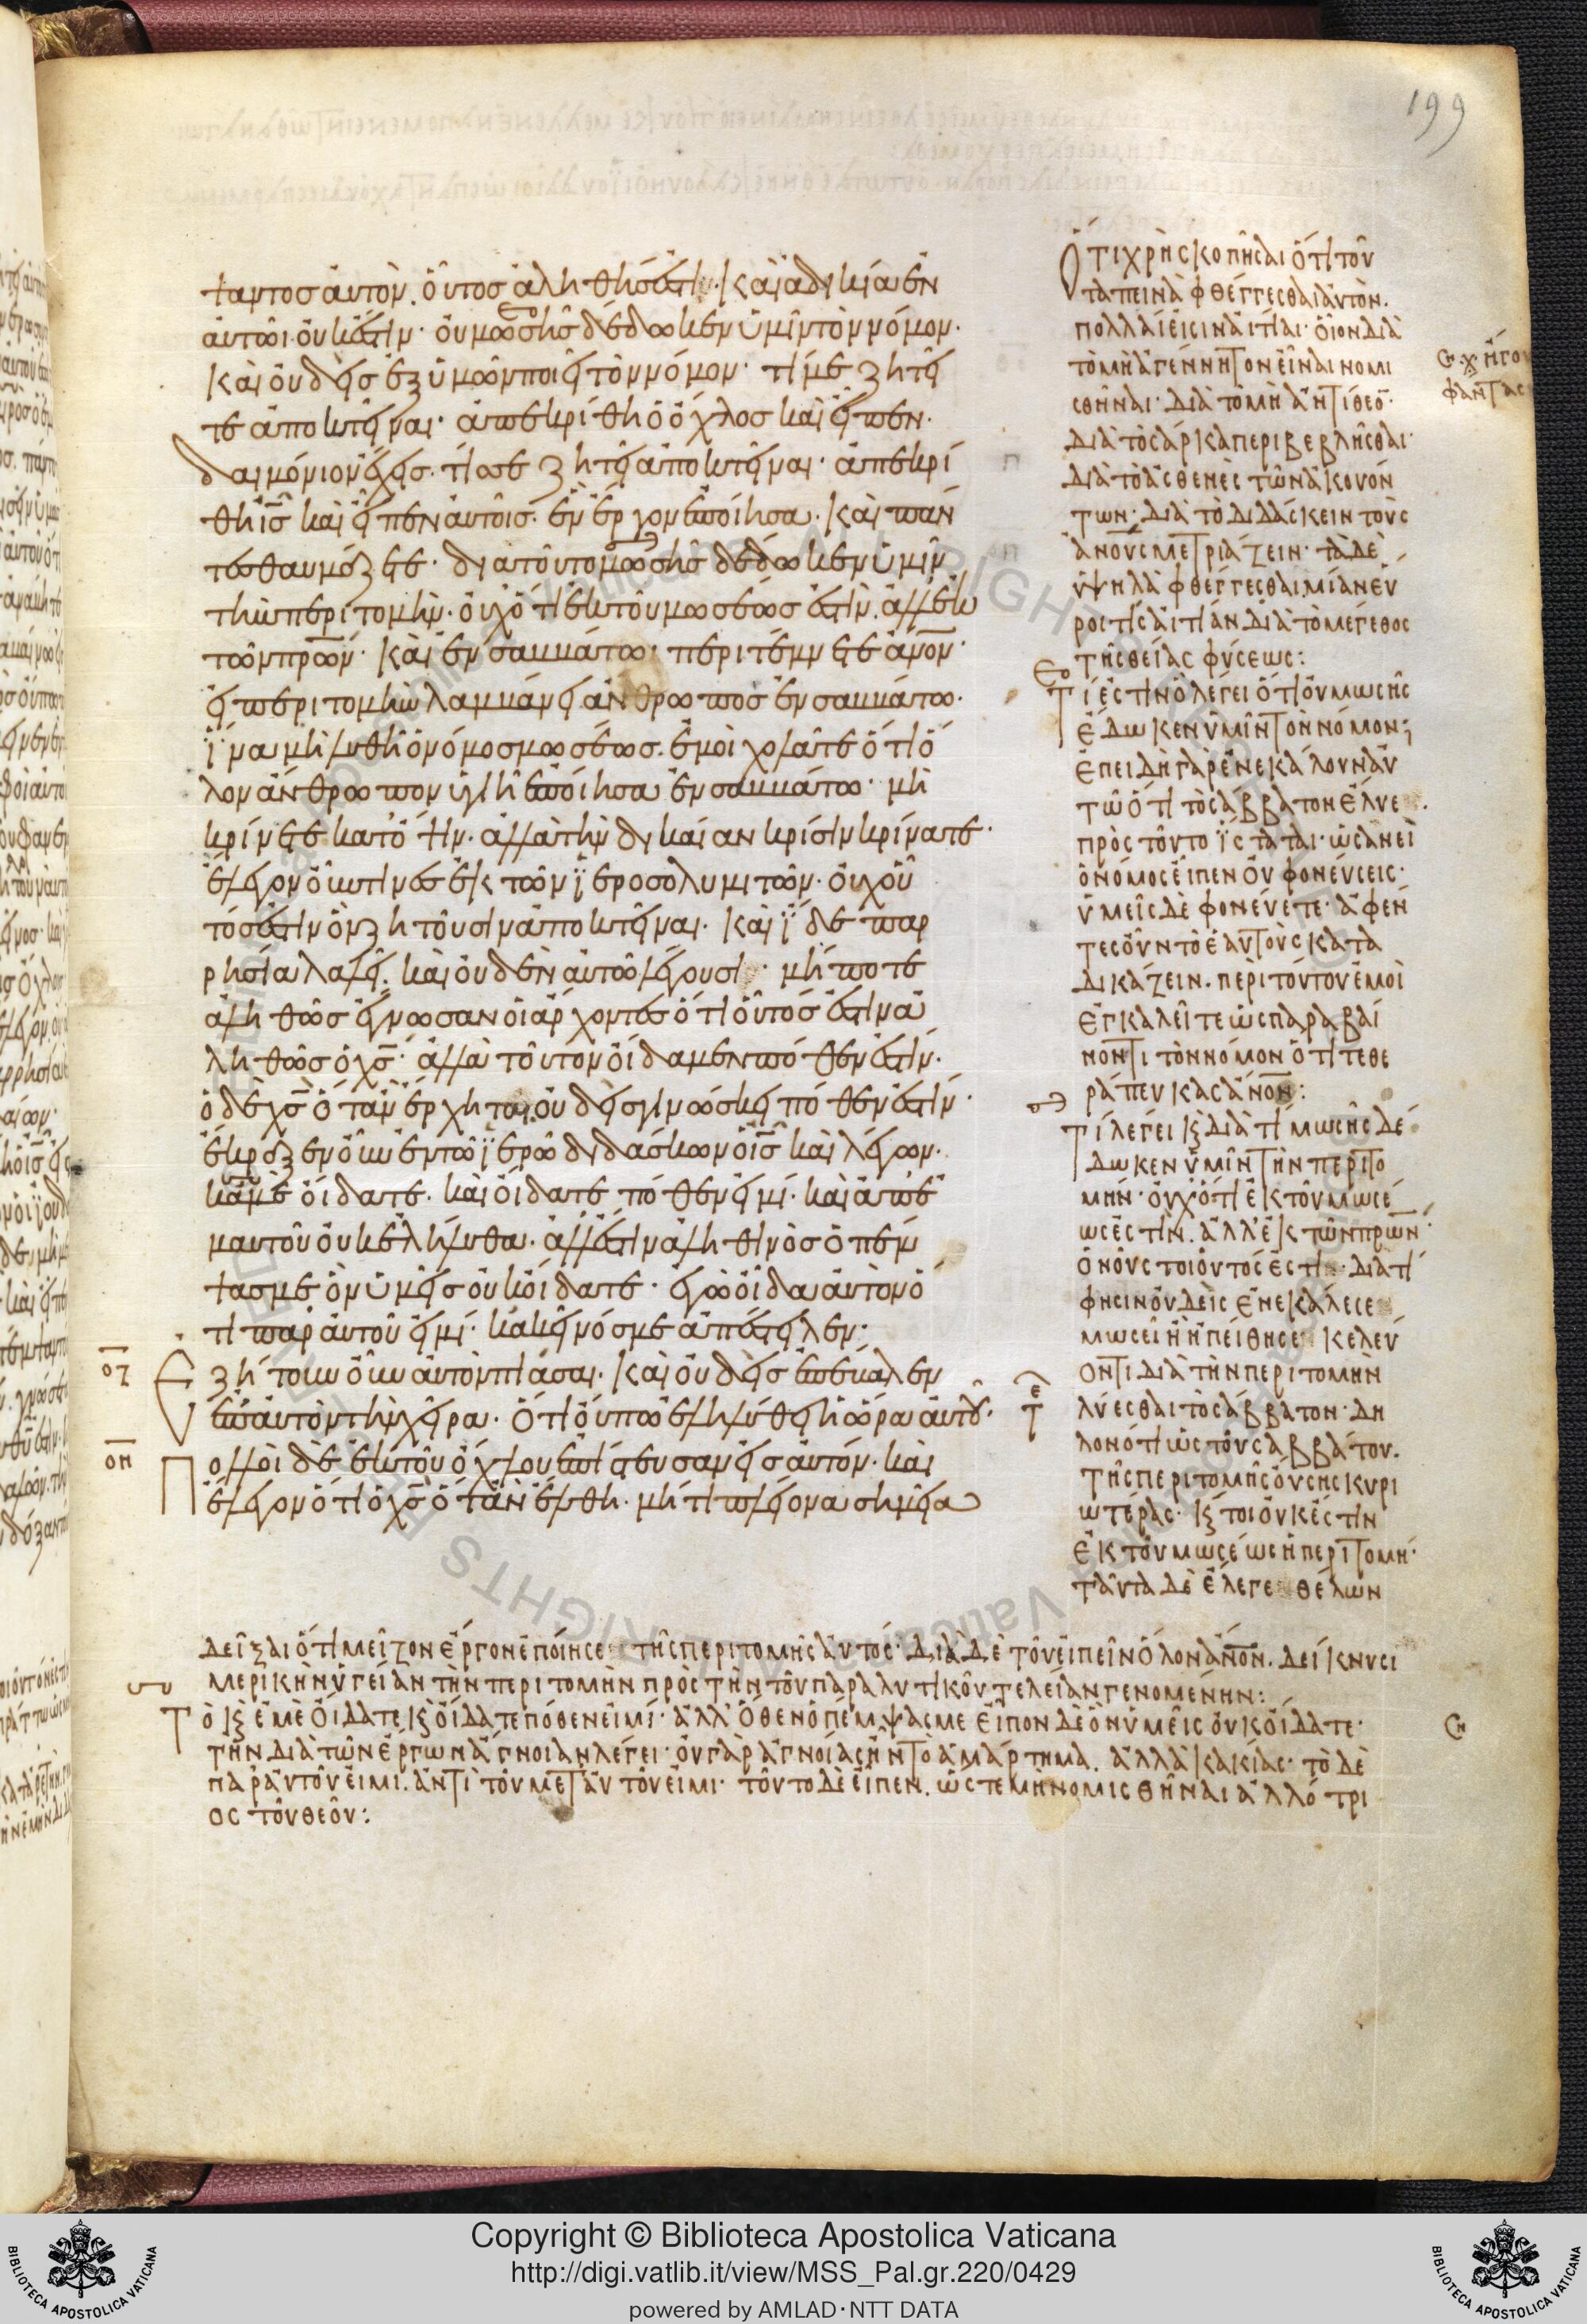 199
ψαντοσ αὐτὸν. οὗτοσ ἀληθήσ ἐστι· καὶ ἀδικία ἐν
αὐτῶι οὐκ ἔστιν· οὐ μωσῆσ δέδωκεν ὑμῖν τὸν νόμον·
καὶ οὐδεὶσ ἐξ ὑμῶν ποιεῖ τὸν νόμον· τί με ζητεῖ
τε ἀποκτεῖναι· ἀπεκρίθη ὁ ὄχλοσ καὶ εἶπεν·
δαιμόνιον ἔχεισ· τίσ σε ζητεῖ ἀποκτεῖναι· ἀπεκρί
θη ἰσ̅ καὶ εἶπεν αὐτοῖσ· ἓν ἔργον ἐποίησα· καὶ πάν
τεσ θαυμάζετε· διατοῦτο μωσῆσ δέδωκεν ὑμῖν
τὴν περιτομὴν· οὐχ ὅτι ἐκ τοῦ μωσέωσ ἐστὶν. ἀλλ' ἐκ
τῶν πρ̅ων· καὶ ἐν σαββάτω· περιτέμνετε ἀν̅ον·
εἰ περιτομὴν λαμβάνει ἄνθρωποσ ἐν σαββάτω·
ἵνα μὴ λυθῆ ὁ νόμοσ μωσέωσ. ἐμοὶ χολᾶτε ὅτι ὅ
λον ἄνθρωπον ὑγιῆ ἐποίησα ἐν σαββάτω· μὴ
κρίνετε κατ' ὄψιν· ἀλλὰ τὴν δικαίαν κρίσιν κρίνατε·
ἔλεγον οὖν τινεσ ἐκ τῶν ἱεροσολυμιτῶν· οὐχ οὗ
τόσ ἐστιν ὃν ζητοῦσιν ἀποκτεῖναι· καὶ ἴδε παρ
ρησία λαλεῖ. καὶ οὐδὲν αὐτῶ λέγουσι· μήποτε
ἀληθῶσ ἔγνωσαν οἱ ἄρχοντεσ ὅτι οὗτόσ ἐστιν ἀ
ληθῶσ ὁ χσ̅· ἀλλὰ τοῦτον οἴδαμεν πόθεν ἐστίν·
ὁ δὲ χσ̅ ὅταν ἔρχηται οὐδεὶσ γινώσκει πόθεν ἐστίν·
ἔκραξεν οὖν ἐν τῶ ἱερῶ διδάσκων ὁ ἰσ̅ καὶ λέγων·
κἀμὲ οἴδατε· καὶ οἴδατε πόθεν εἰμί· καὶ ἀπ' ἐ
μαυτοῦ οὐκ ἐλήλυθα· ἀλλ' ἔστιν ἀληθινὸσ ὁ πέμ
ψασ με ὃν ὑμεῖσ οὐκ οἴδατε· ἐγὼ οἶδα αὐτὸν ὅ
τι παρ' αὐτοῦ εἰμί· κἀκεῖνόσ με ἀπέστειλεν·
οζ Εζήτουν οὖν αὐτὸν πιάσαι· καὶ οὐδεὶσ ἐπέβαλεν
ἐπ' αὐτὸν τὴν χεῖρα· ὅτι οὔπω ἐληλύθει ἡ ὥρα αὐτοῦ·
οη Πολλοὶ δὲ ἐκ τοῦ ὄχλου ἐπίστευσαν εἰσ αὐτόν· καὶ
ἔλεγον ὅτι ὁ χσ̅ ὅταν ἔλθη· μήτι πλείονα σημεῖα
Ὅτι χρὴ σκοπῆσαι ὅτι τοῦ
ταπεινὰ φθέγγεσθαι αὐτὸν.
πολλαὶ εἰσιν αἰτίαι· οἷον διὰ
τὸ μὴ ἀγέννητον εἶναι νομι
σθῆναι· διὰ τὸ μὴ ἀντίθεο̅·
διὰ τὸ σάρκα περιβεβλῆσθαι·
διὰ τὸ ἀσθενὲς τῶν ἀκουόν
των· διὰ τὸ διδάσκειν τοὺς
ἀν̅ους μετριάζειν· τὰ δὲ
ὑψηλὰ φθέγγεσθαι μίαν εὕ
ροι τίς αἰτίαν διὰ τὸ μέγεθος
τῆς θείας φύσεως:
Τί ἐστιν ὃ λέγει ὅτι οὐ μωσῆς
ἔδωκεν ὑμῖν τὸν νόμον;
ἐπειδὴ γὰρ ἐνεκάλουν αὐ
τῶ ὅτι τὸ σάββατον ἔλυε.
πρὸς τοῦτο ἵσταται· ὡσανεὶ
ὁ νόμος εἶπεν οὐ φονεύσεις·
ὑμεῖς δὲ φονεύετε· ἀφέν
τες οὖν τὸ ἑαυτοὺς κατα
δικάζειν. περὶ τούτου ἐμοὶ
ἐγκαλεῖτε ὡς παραβαί
νοντι τὸν νόμον ὅτι τεθε
ράπευκας ἀν̅ον:
Τί λέγει κ διὰ τί μωσῆς δέ
δωκεν ὑμῖν τὴν περιτο
μήν· οὐχ ὅτι ἐκ τοῦ μωσέ
ως ἐστὶν. ἀλλ' ἐκ τῶν πρ̅ων·
ὃ νοῦς τοιοῦτός ἐστι· διατί
φησιν οὐδεὶς ἐνεκάλεσε
μωσεῖ ἢ ἠπείθησε κελεύ
οντι διὰ τὴν περιτομὴν
λύεσθαι τὸ σάββατον· δη
λονότι ὡς τοῦ σαββάτου.
τῆς περιτομῆς οὔσης κυρι
ωτέρας· κ τοι οὐκ ἔστιν
ἐκ τοῦ μωσέως ἡ περιτομή·
ταῦτα δὲ ἔλεγε θέλων
δεῖξαι ὅτι μεῖζον ἔργον ἐποίησε τῆς περιτομῆς αὐτός· διὰ δὲ τοῦ εἰπεῖν ὅλον ἄν̅ον. δείκνυσι
μερικὴν ὑγείαν τὴν περιτομὴν πρὸς τὴν τοῦ παραλυτικοῦ τελείαν γενομένην:
Τὸ κ ἐμὲ οἴδατε κ οἴδατε πόθεν εἰμί· ἀλλ' ὅθεν ὁ πέμψας με εἶπον δὲ ὃν ὑμεῖς οὐκ οἴδατε·
τὴν διὰ τῶν ἔργων ἄγνοιαν λέγει· οὐ γὰρ ἀγνοίας ἦν τὸ ἁμάρτημα. ἀλλὰ κακίας· τὸ δὲ
παρ' αὐτοῦ εἰμι. ἀντὶ τοῦ μετ' αὐτοῦ εἰμι· τοῦτο δὲ εἶπεν. ὥστε μὴ νομισθῆναι ἀλλότρι
ος τοῦ θεοῦ:
Copyright © Biblioteca Apostolica Vaticana
http://digi.vatlib.it/view/MSS_Pal.gr.220/0429
powered by AMLAD·NTT DATA
BIBLIOTECA APOSTOLICA VATICANA
BIBLIOTECA APOSTOLICA VATICANA